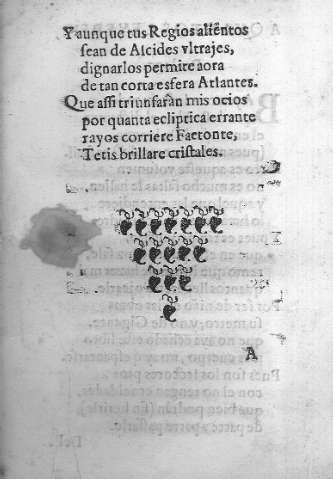 Y aunque tus Regios alientos
sean de Alcides vltrajes,
dignarlos permite aora
de tan corta esfera Atlantes.
Que assi triunfaràn mis ocios
por quanta ecliptica errante
rayos corriere Faetonte,
Tetis brillare cristales.
A